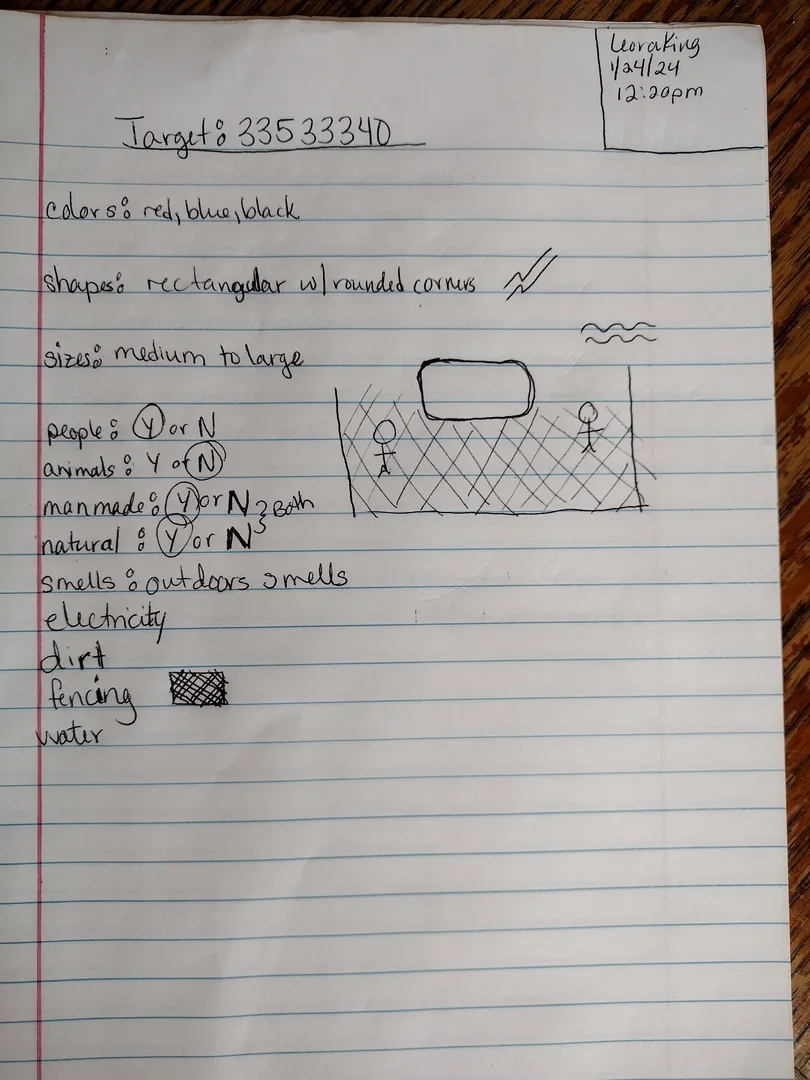 LeoraKing
1/24/24
12:20pm
Target: 33533340
colors: red, blue, black
shapes: rectangular w/ rounded corners
sizes: medium to large
people: Y or N
animals: Y or N
manmade: Y or N } Both
natural: Y or N
smells: outdoors smells
electricity
dirt
fencing
water